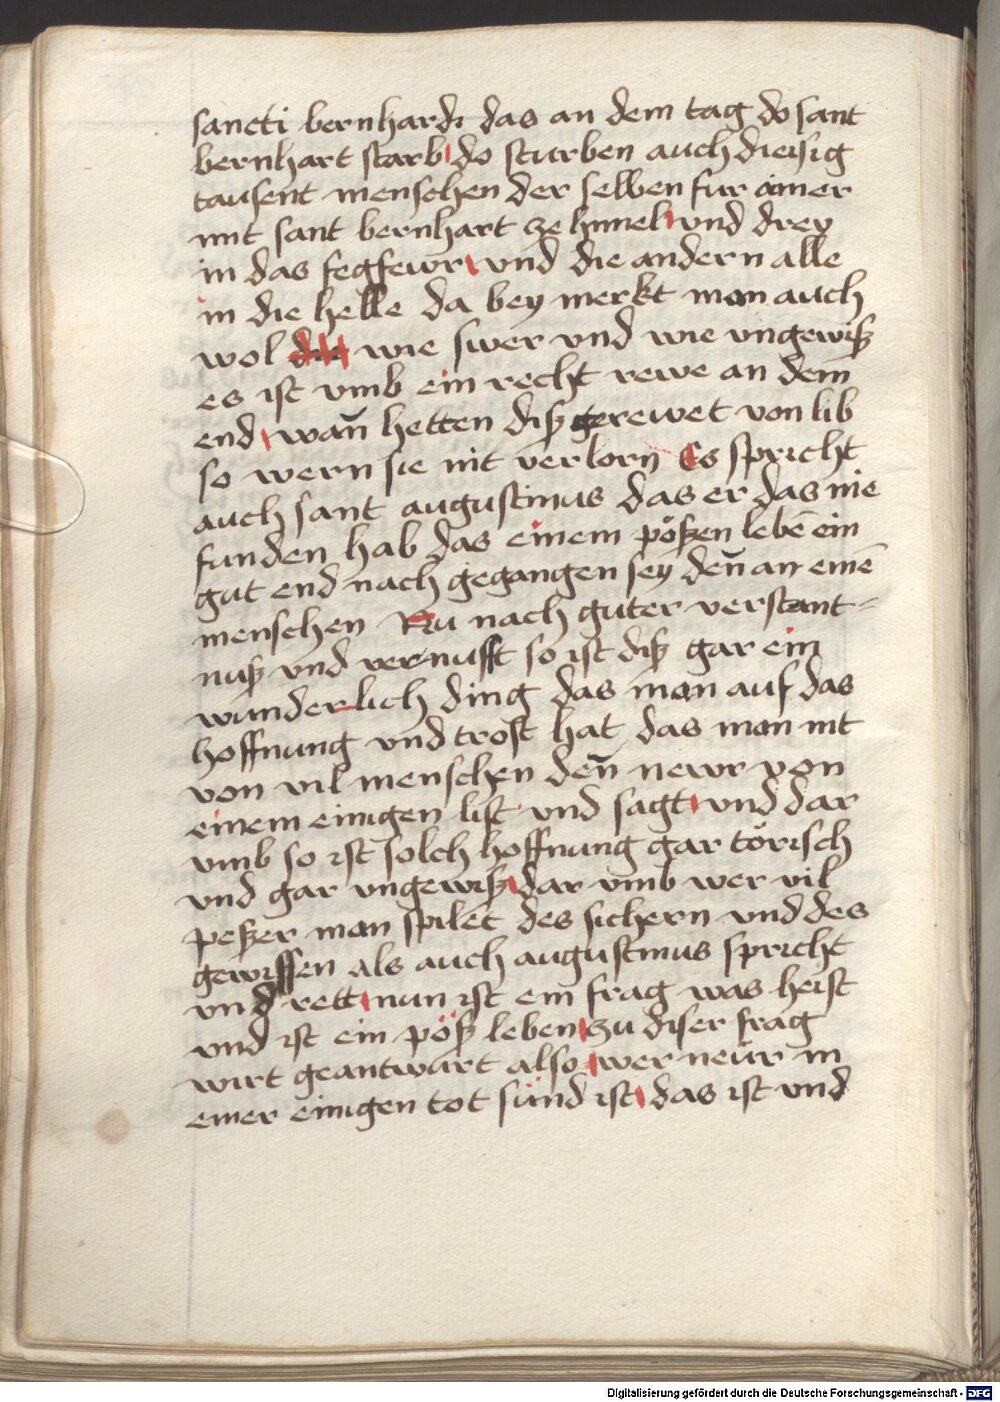 sancti bernhardi das an dem tag do sant
bernhart starb do sturben auch dreisig
tausent menschen der selben fur ainer
mit sant bernhart ze himel und drey
in das fegfewr und die andern alle
in die helle da bey merkt man auch
wol wie swer vnd wie vngewiß
es ist vmb ein recht rewe an dem
end wan̄ hetten diß gerewet von lib
so wern sie nit verlorn Es spricht
auch sant augustinus das er das nie
funden hab das einem pößen lebē ein
gut end nach gegangen sey den̄ an einē
menschen Nu nach guter verstant=
nuß vnd vernufft so ist diß gar ein
wunderlich ding das man auf das
hoffnung vnd trost hat das man nit
von vil menschen den̄ newr von
einem einigen list vnd sagt vnd dar
vmb so ist solch hoffnung gar törisch
vnd gar vngewiß dar vmb wer vil
peßer man spilet des sichern vnd des
gewissen als auch augustinus spricht
vnd rett nun ist ein frag was heist
vnd ist ein pöß leben zu diser frag
wirt geantwürt also wer neür in
einer einigen tot sünd ist das ist vnd
Digitalisierung gefördert durch die Deutsche Forschungsgemeinschaft - DFG